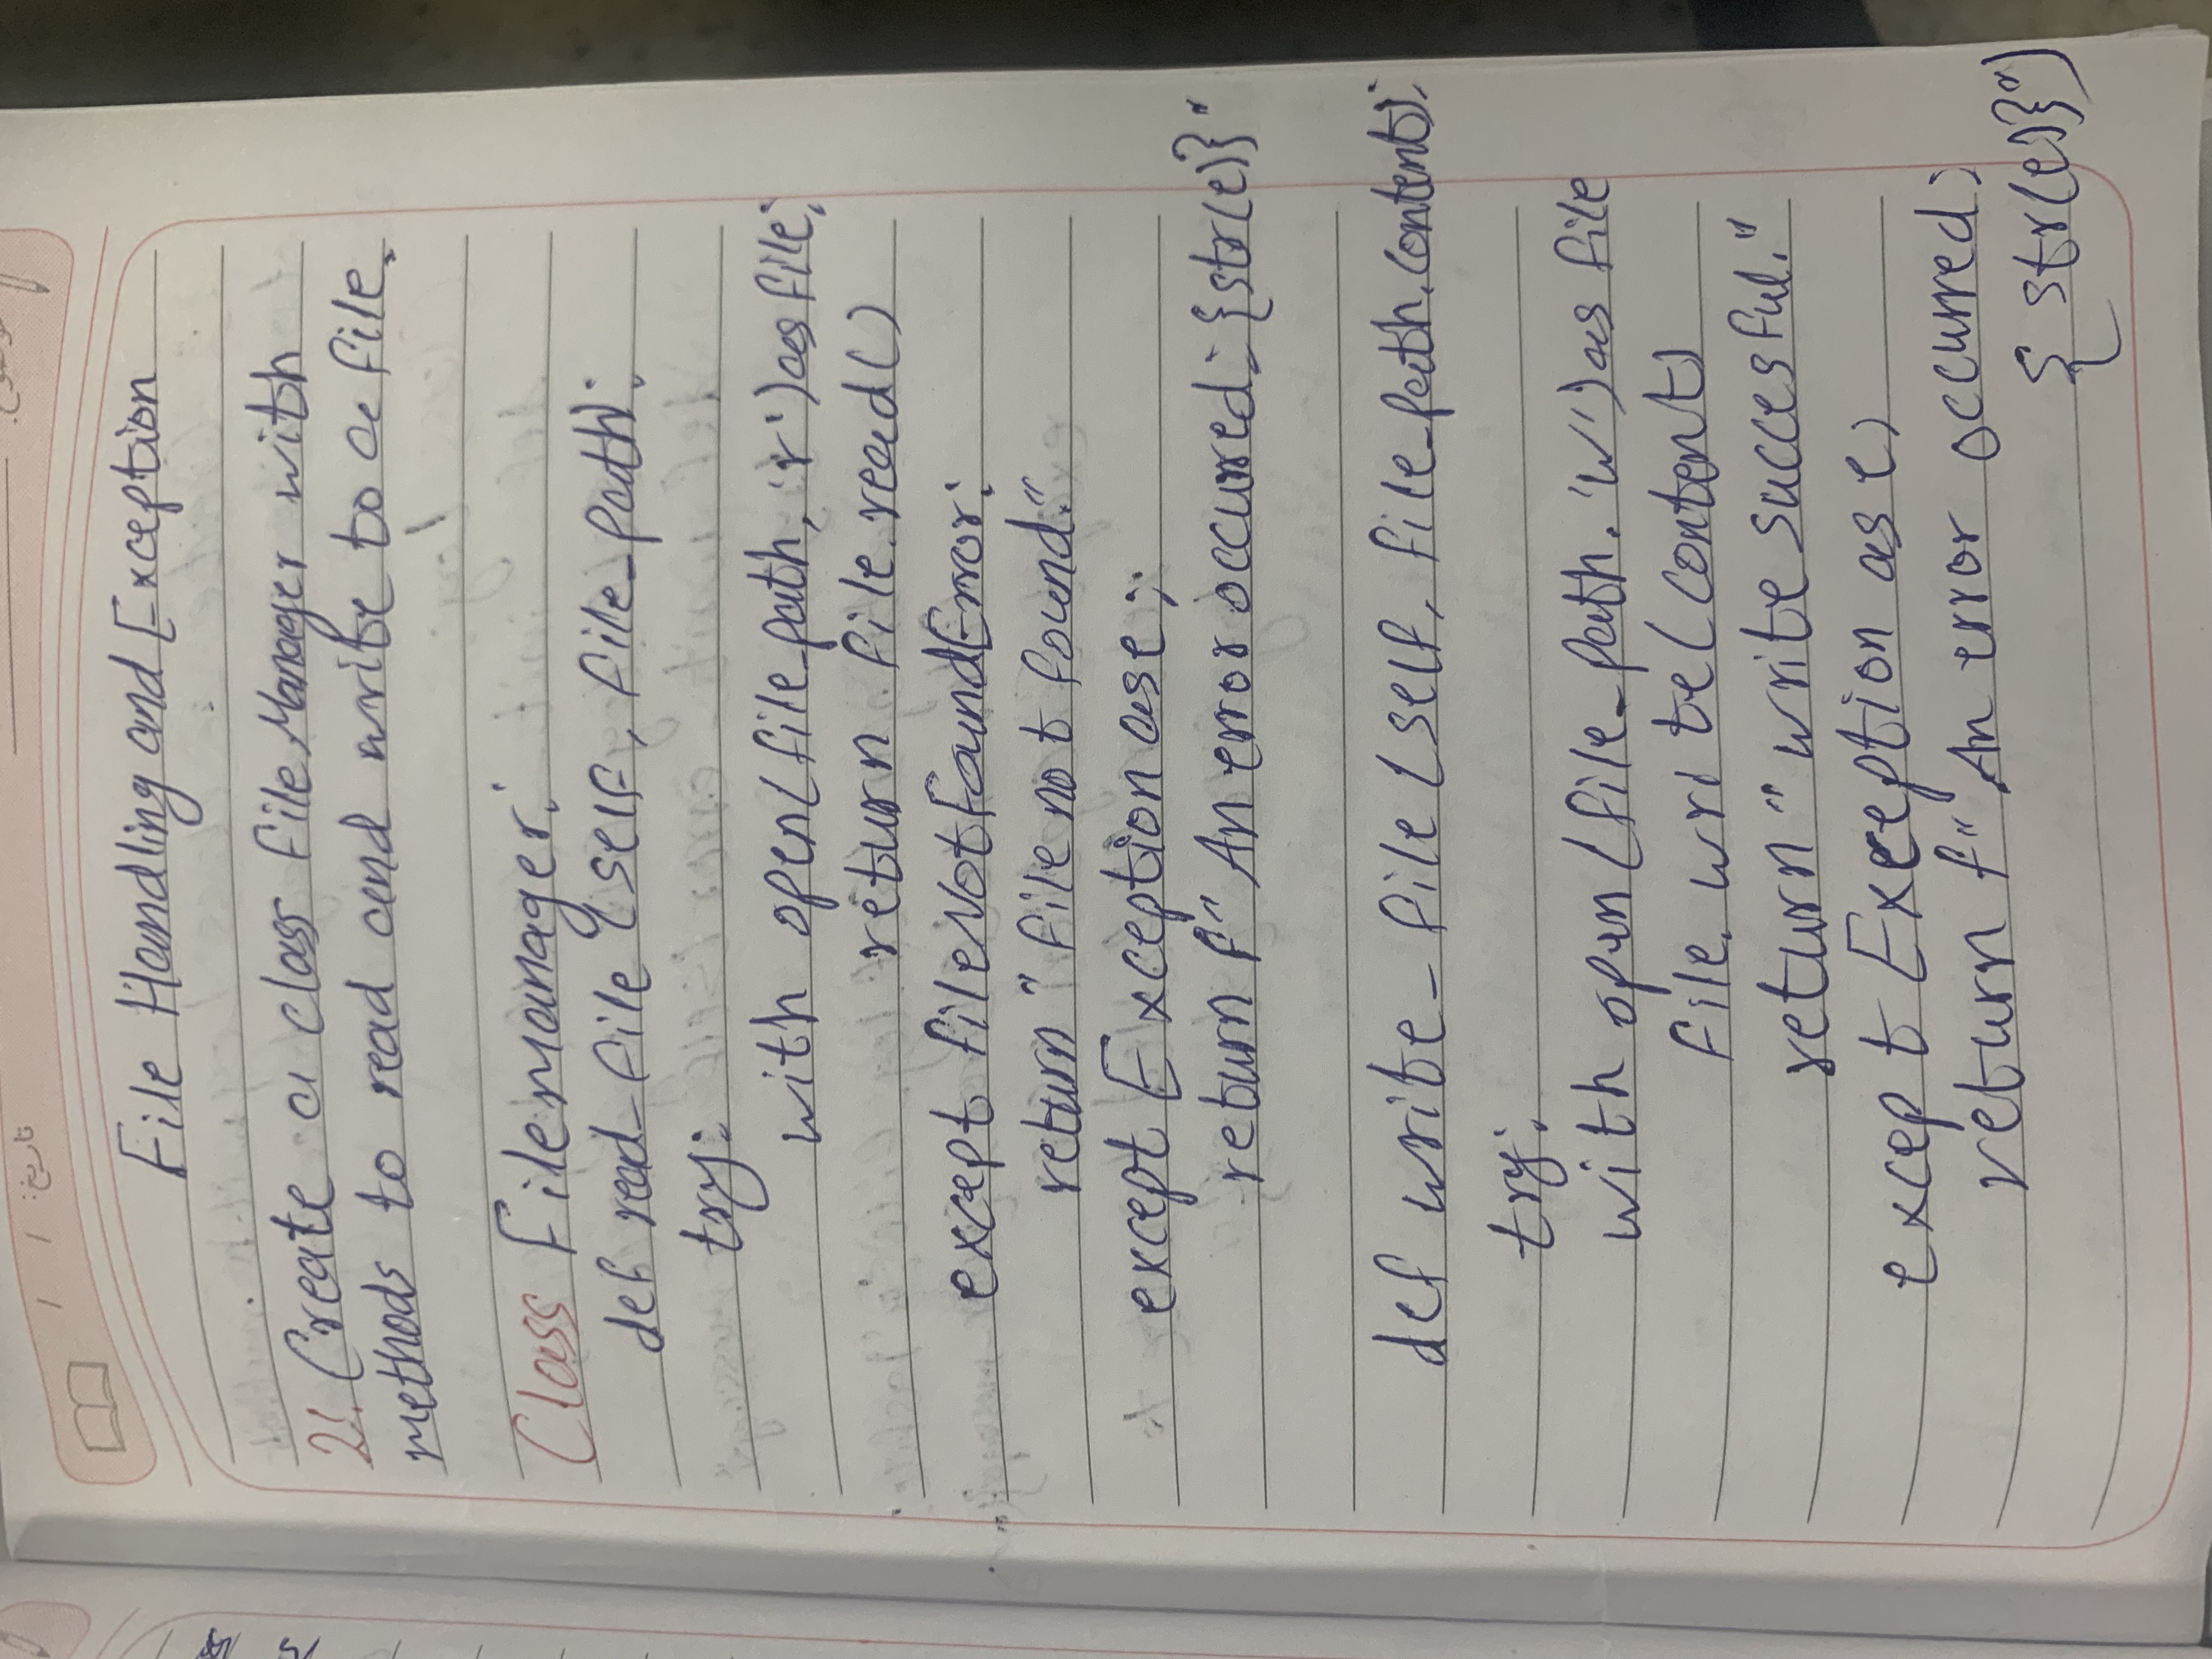 موضوع:
تاریخ: / /
File Handling and Exception
21. Create a class FileManager with
methods to read and write to a file.
Class Filemanager:
def read_file (self, file_path):
try:
with open(file_path, 'r') as file:
return file.read()
except fileNotFoundError:
return "file not found."
except Exception as e:
return f"An error occurred: {str(e)}"
def write_file (self, file_path, content):
try:
with open (file_path, 'w') as file
file.write(content)
return "write succesful."
except Exception as e:
return f"An error occurred:
{str(e)}")